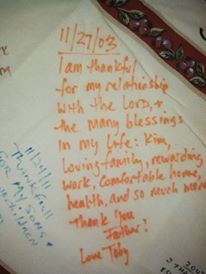 11/27/03
I am thankful
for my relationship
with the Lord, +
the many blessings
in my life: Kim,
loving family, rewarding
work, comfortable home,
health, and so much more.
Thank You
Father!
Love Toby
11/24/11
Thankful
for my sons +